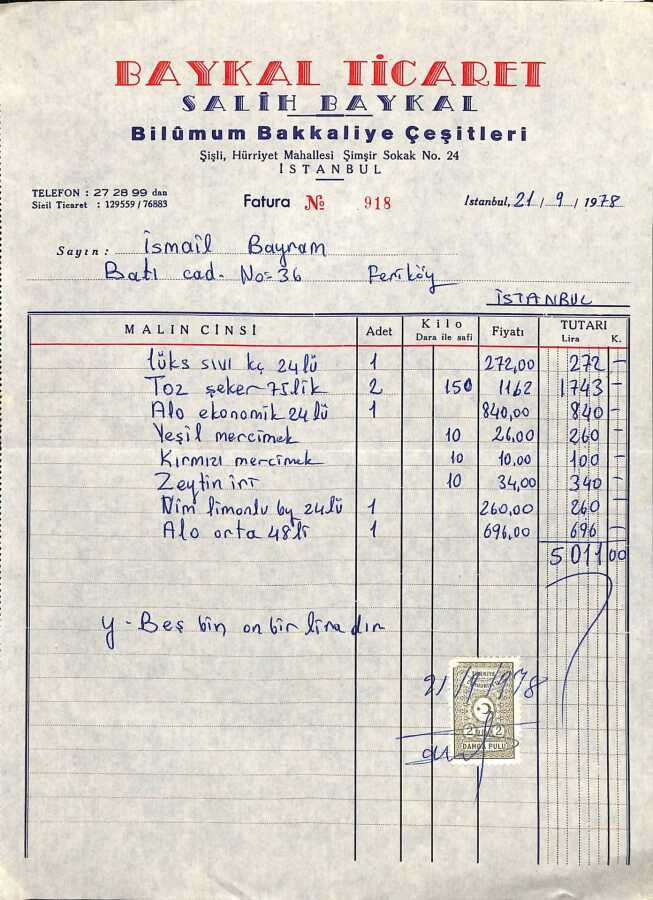 BAYKAL TİCARET
SALİH BAYKAL
Bilûmum Bakkaliye Çeşitleri
Şişli, Hürriyet Mahallesi Şimşir Sokak No. 24
İSTANBUL
TELEFON : 27 28 99 dan
Sicil Ticaret : 129559 / 76883
Fatura № 918
Istanbul, 21 / 9 / 1978
Sayın : İsmail Bayram
Batı cad. No=36 Feriköy
İSTANBUL
MALIN CİNSİ Adet Kilo Dara ile safi Fiyatı TUTARI Lira K.
lüks sıvı kç 24lü 1 272,00 272 -
Toz şeker 75lik 2 150 1162 1743 -
Alo ekonomik 24lü 1 840,00 840 -
Yeşil mercimek 10 26,00 260 -
Kırmızı mercimek 10 10,00 100 -
Zeytin iri 10 34,00 340 -
Nim limonlu by 24lü 1 260,00 260 -
Alo orta 48li 1 696,00 696 -
5011 00
Y - Beş bin on bir liradır
21/9/1978
2 2
DAMGA PULU